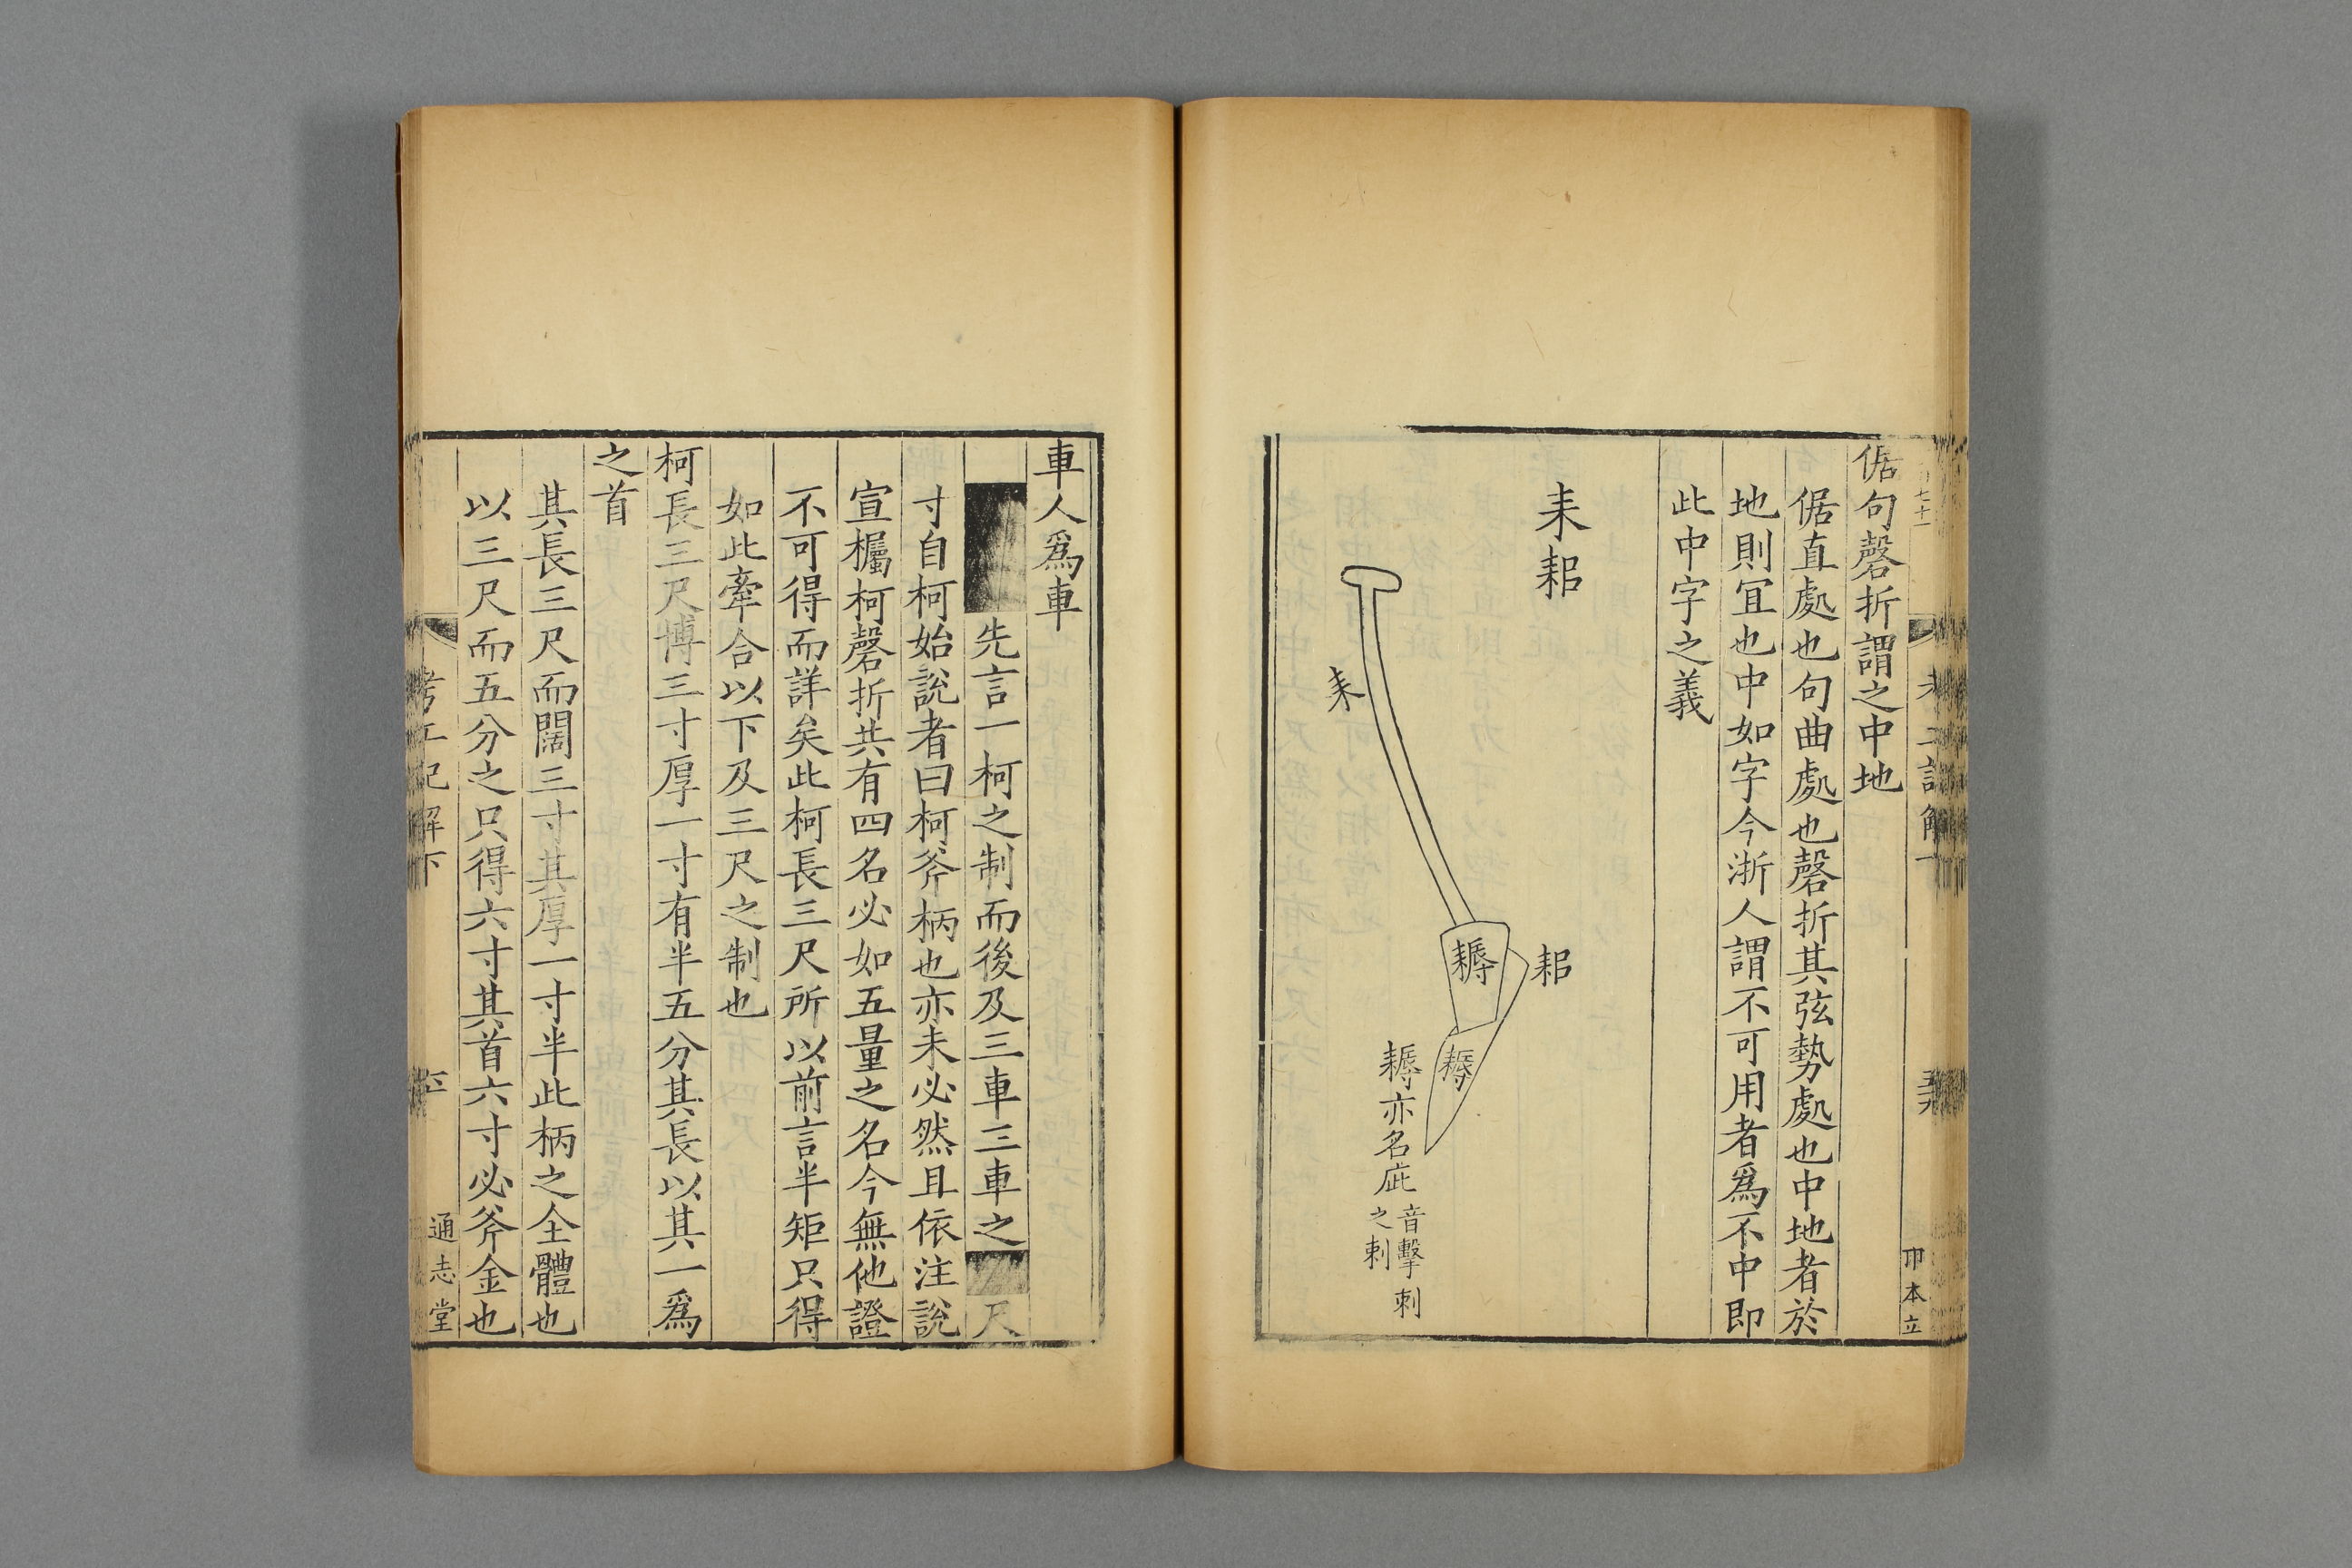 倨句磬折謂之中地
倨直處也句曲處也磬折其弦勢處也中地者於
地則冝也中如字今浙人謂不可用者爲不中即
此中字之義
耒耜
耒
耜
耨
耨
耨亦名庛
音擊刺
之刺
車人爲車
先言一柯之制而後及三車三車之
尺
寸自柯始說者曰柯斧柄也亦未必然且依注說
宣欘柯磬折共有四名必如五量之名今無他證
不可得而詳矣此柯長三尺所以前言半矩只得
如此牽合以下及三尺之制也
柯長三尺博三寸厚一寸有半五分其長以其一爲
之首
其長三尺而闊三寸其厚一寸半此柄之全體也
以三尺而五分之只得六寸其首六寸必斧金也
考工記解下
通志堂